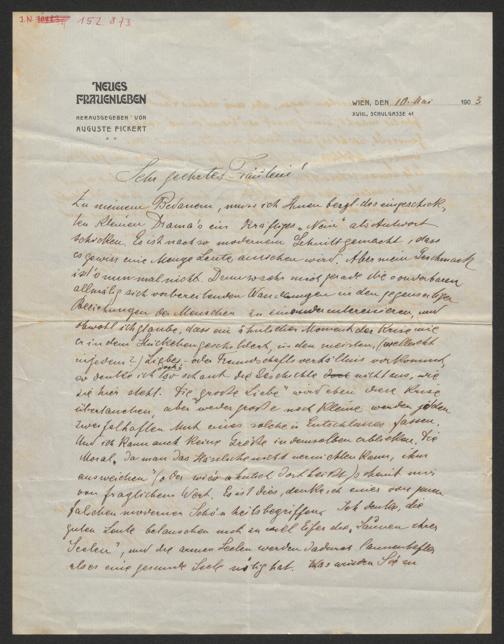 J.N. 152 873
NEUES
FRAUENLEBEN
HERAUSGEGEBEN VON
AUGUSTE FICKERT
WIEN, DEN 10. Mai 1903
XVIII., SCHULGASSE 41
Sehr geehrtes Fräulein!
Zu meinem Bedauern, muss ich Ihnen bezgl. des eingeschick-
ten kleinen Drama's ein kräftiges „Nein" als Antwort
schicken. Es ist nach so modernem Schnitt gemacht, dass
es gewiss eine Menge Leute ansprechen wird. Aber mein Geschmack
ist's nun mal nicht. Denn so sehr mich gerade die sonderbaren
allmälig sich vorbereitenden Wandlungen in den gegenseitigen
Beziehungen der Menschen zu einander interessieren, und
obwohl ich glaube, dass ein ähnlicher Moment der Krise wie
er in dem Stückchen geschildert, in den meisten, (vielleicht
in jedem?) Liebes- oder Freundschaftsverhältnis vorkommt,
so denke ich doch so schaut die Geschichte nicht aus, wie
sie hier steht. Die „große Liebe" wird eben diese Krise
überdauern, aber weder große noch kleine werden
zweifelhaften Mut eines solchen Entschlusses fassen.
Und ich kann auch keine Größe in demselben erblicken. Die
Moral, da man das Hässliche nicht vernichten kann, ihm
ausweichen (oder wie's ähnlich dort heißt) scheint mir
von fraglichem Wert. Es ist dies, denke ich eines von jenen
falschen modernen Schönheitsbegriffen. Ich denke, die
guten Leute belauschen mit zu viel Eifer die „Launen ihrer
Seelen", und die armen Seelen werden dadurch launenhafter
als es eine gesunde Seele nötig hat. Was würden Sie zu